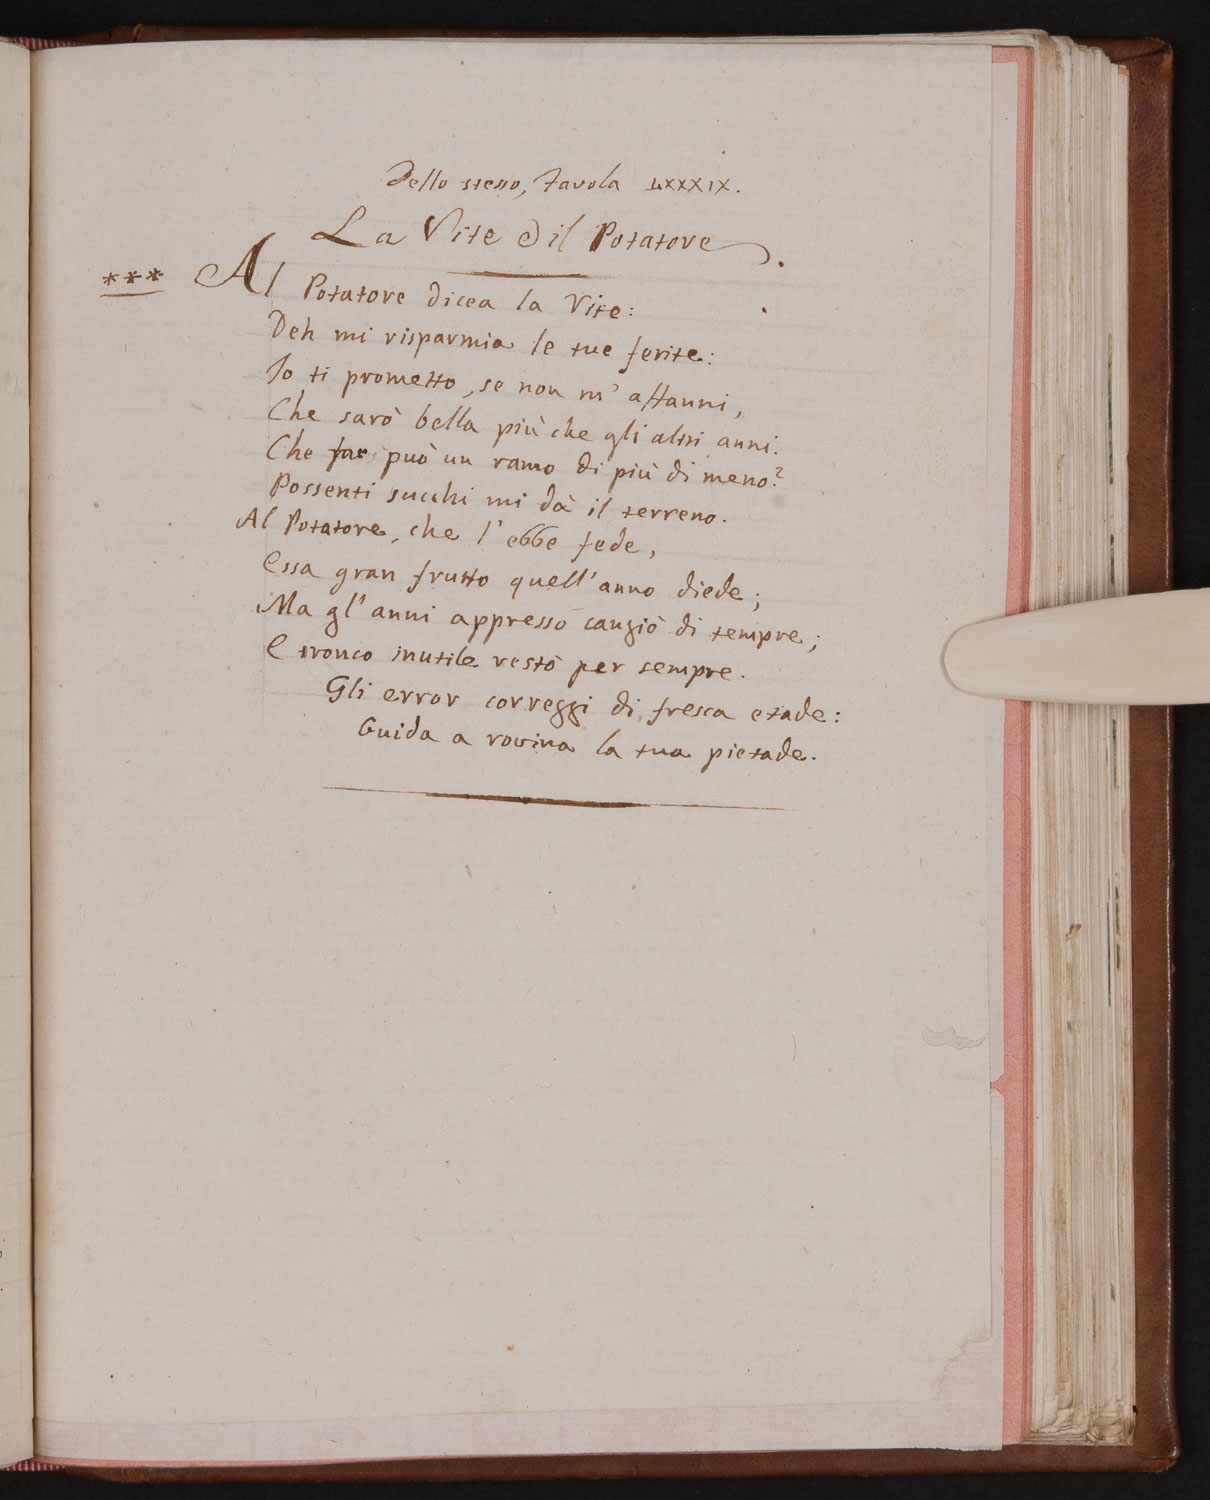 Dello stesso, Favola LXXXIX.
La Vite e il Potatore.
*** Al Potatore dicea la Vite:
Deh mi risparmia le tue ferite:
Io ti prometto, se non m'affanni,
Che sarò bella più che gli altri anni.
Che far può un ramo di più di meno?
Possenti succhi mi dà il terreno.
Al Potatore, che l'ebbe fede,
Essa gran frutto quell'anno diede;
Ma gl'anni appresso cangiò di tempre;
E tronco inutile restò per sempre.
Gli error correggi di fresca etade:
Guida a rovina la tua pietade.